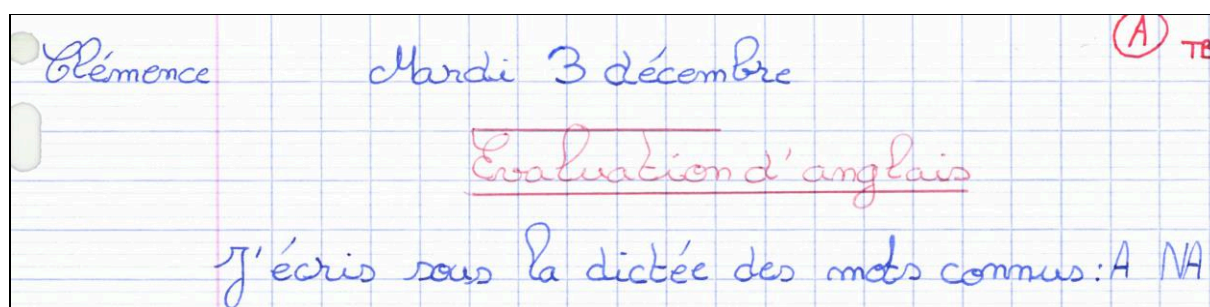 Clémence Mardi 3 décembre A TB
Evaluation d'anglais
J'écris sous la dictée des mots connus : A NA